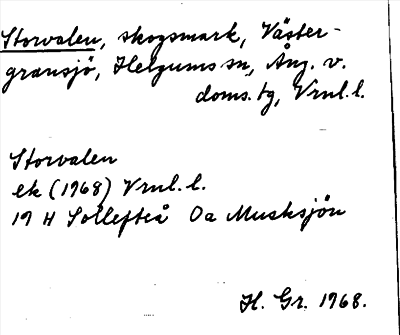 Storvalen, skogsmark, Väster-
gransjö, Helgums sn, Ång. v.
doms. tg, Vrnl. l.
Storvalen
ek (1968) Vrnl. l.
19 H Sollefteå 0a Musksjön
H. Gr. 1968.